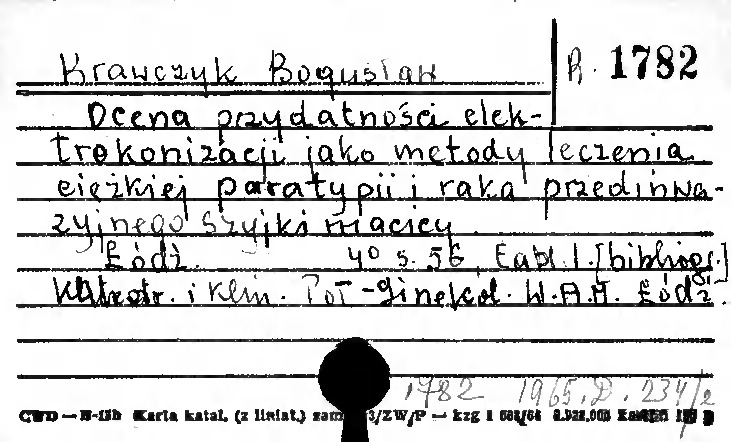 Krawczyk Bogusław R. 1782
Ocena przydatności elek-
trokonizacji jako metody leczenia
ciężkiej paratypii i raka przedinwa-
zyjnego szyjki macicy
Łódź. 4° s. 56, tabl. 1. [bibliogr.]
i Klin. Poł-Ginekol. W.A.M. Łódź.
1782 1965.D. 234/2
CWD — Karta katal. (z liniat.) zam /ZW/P — kzg 1